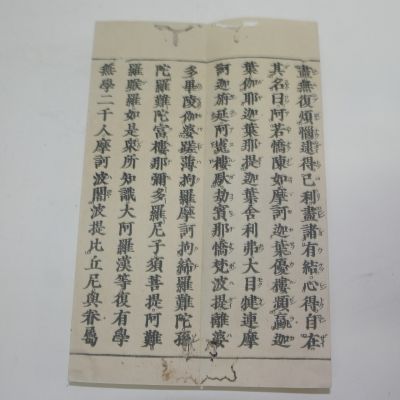 盡無復煩惱逮得己利盡諸有結心得自在
其名曰阿若憍陳如摩訶迦葉優樓頻螺迦
葉伽耶迦葉那提迦葉舍利弗大目犍連摩
訶迦旃延阿㝹樓馱劫賓那憍梵波提離婆
多畢陵伽婆蹉薄拘羅摩訶拘絺羅難陀孫
陀羅難陀富樓那彌多羅尼子須菩提阿難
羅睺羅如是衆所知識大阿羅漢等復有學
無學二千人摩訶波闍波提比丘尼與眷屬